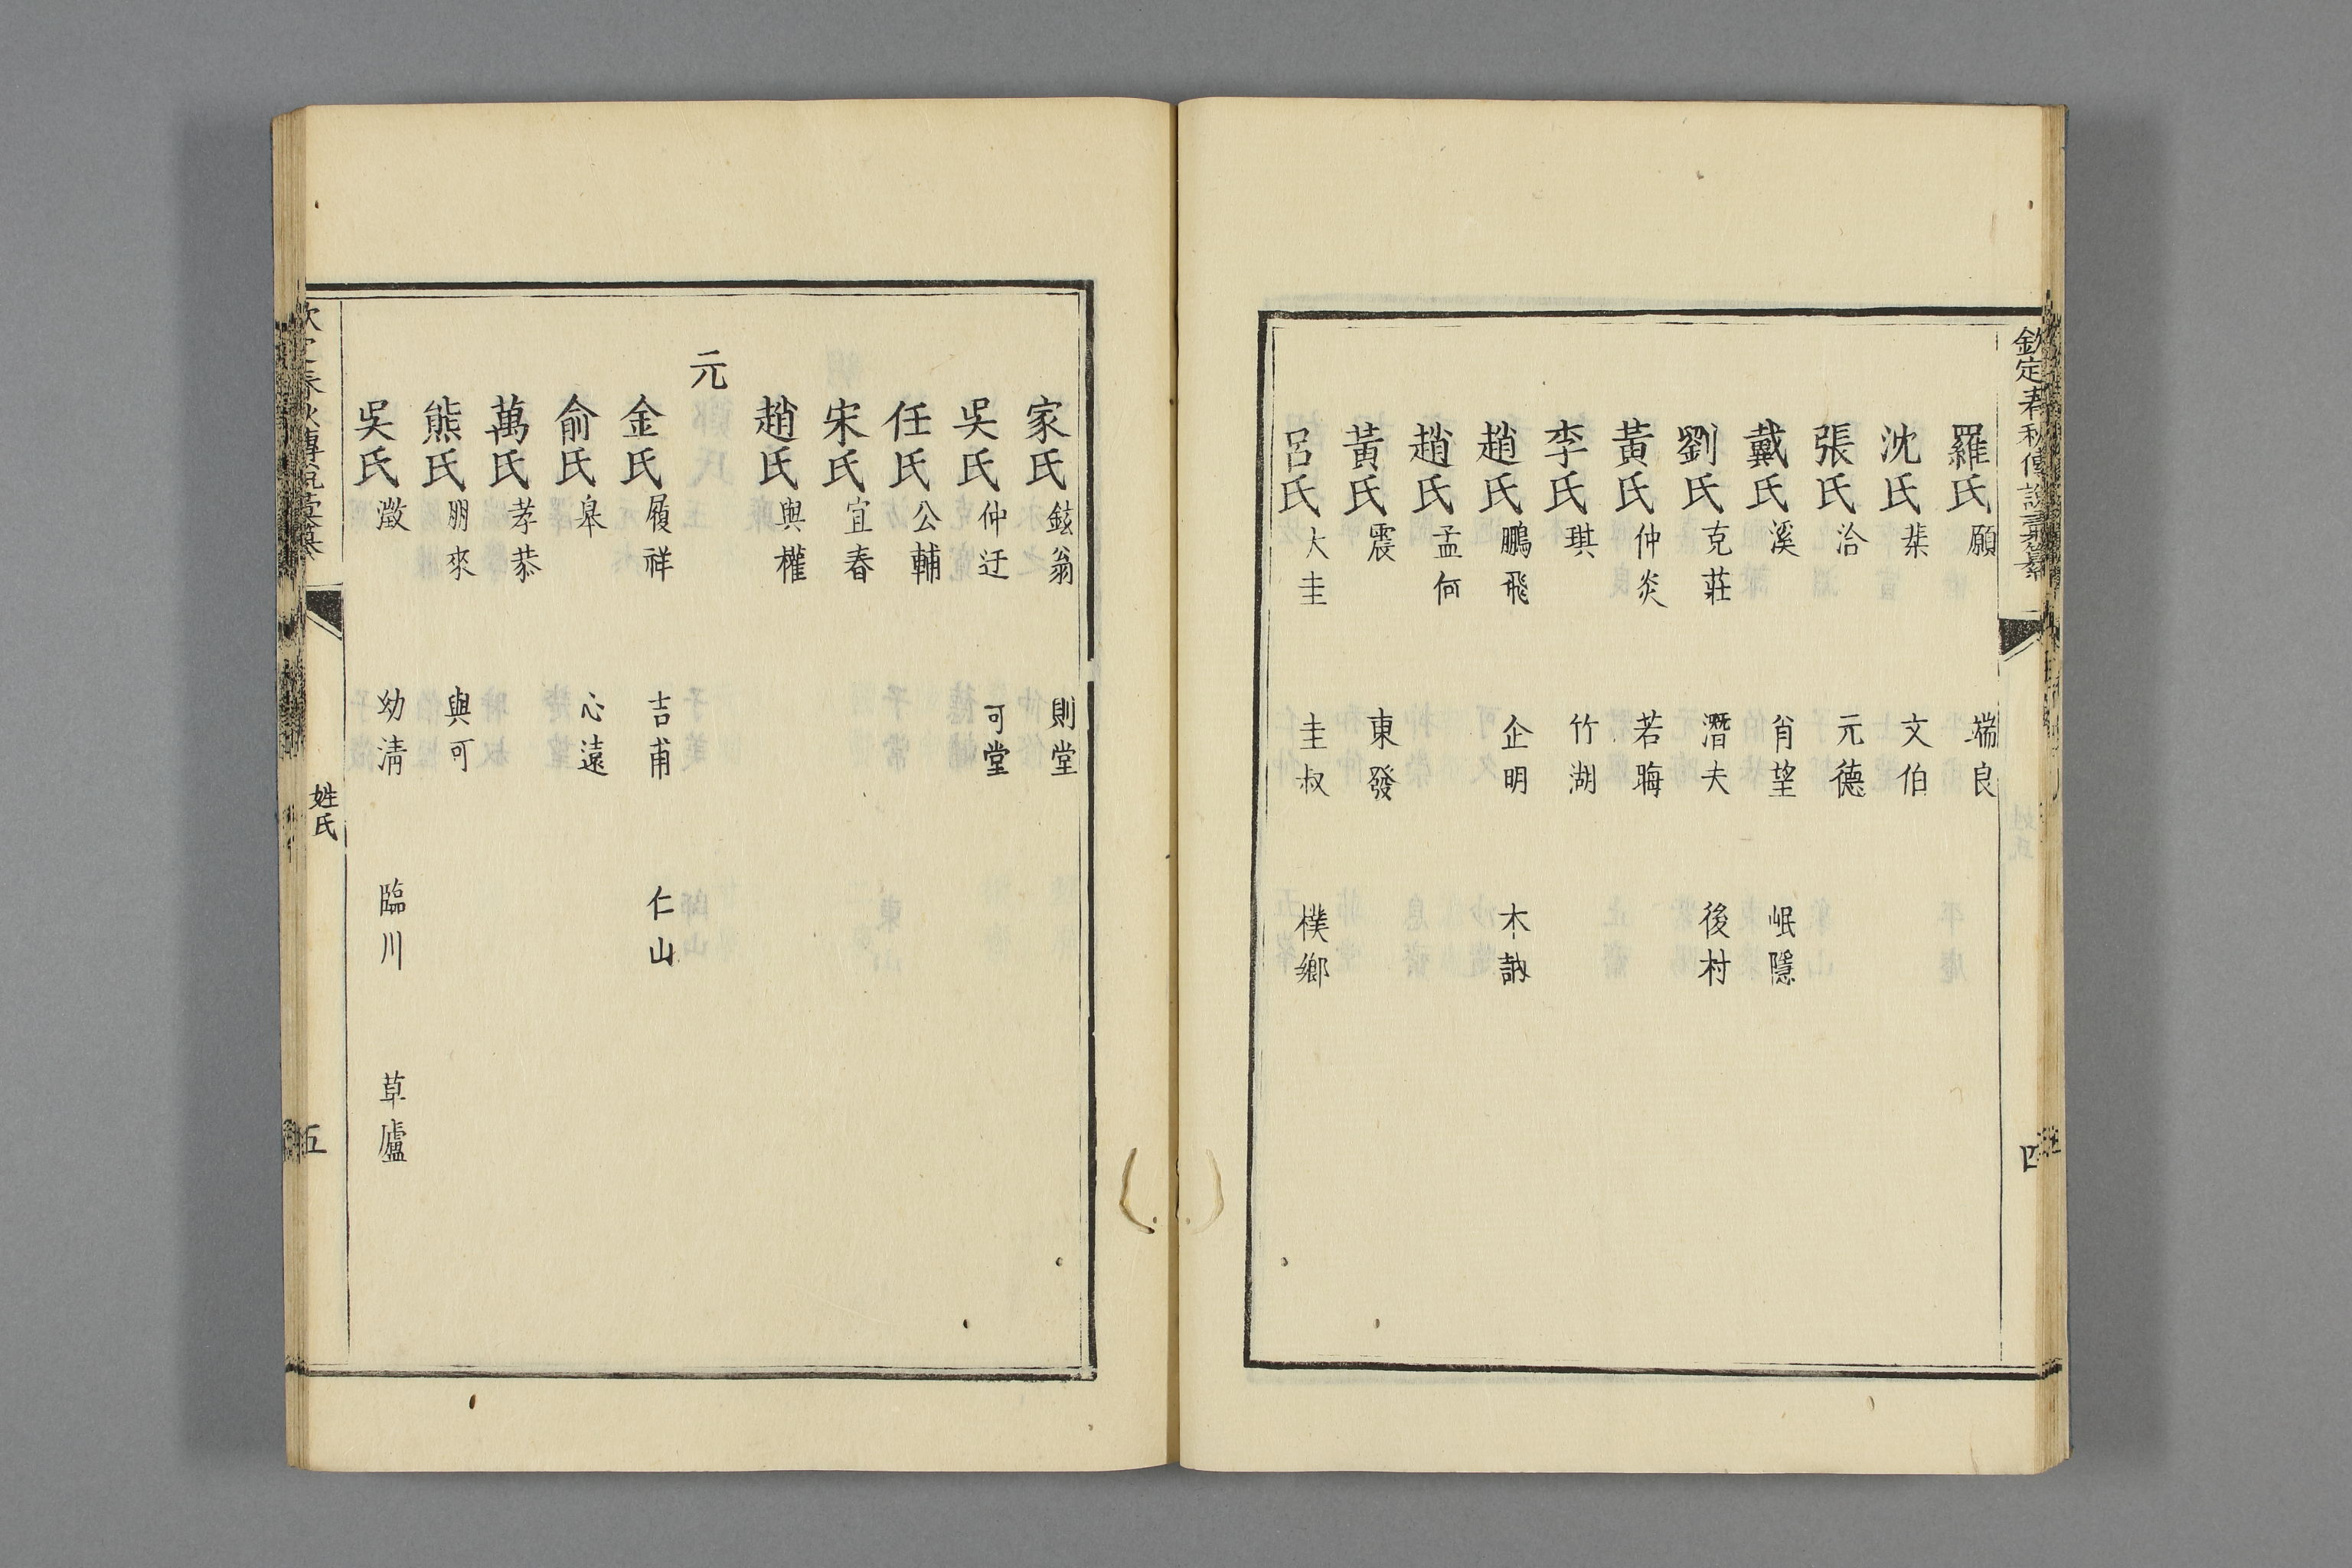 欽定春秋傳說彙纂
四
羅氏 願 端良
沈氏 棐 文伯
張氏 洽 元德
戴氏 溪 肖望 岷隱
劉氏 克莊 潛夫 後村
黃氏 仲炎 若晦
李氏 琪 竹湖
趙氏 鵬飛 企明 木訥
趙氏 孟何
黃氏 震 東發
呂氏 大圭 圭叔 樸鄉
家氏 鉉翁 則堂
吳氏 仲迂 可堂
任氏 公輔
宋氏 宜春
趙氏 與權
元
金氏 履祥 吉甫 仁山
俞氏 皋 心遠
萬氏 孝恭
熊氏 朋來 與可
吳氏 澂 幼淸 臨川 草廬
欽定春秋傳說彙纂
姓氏
五